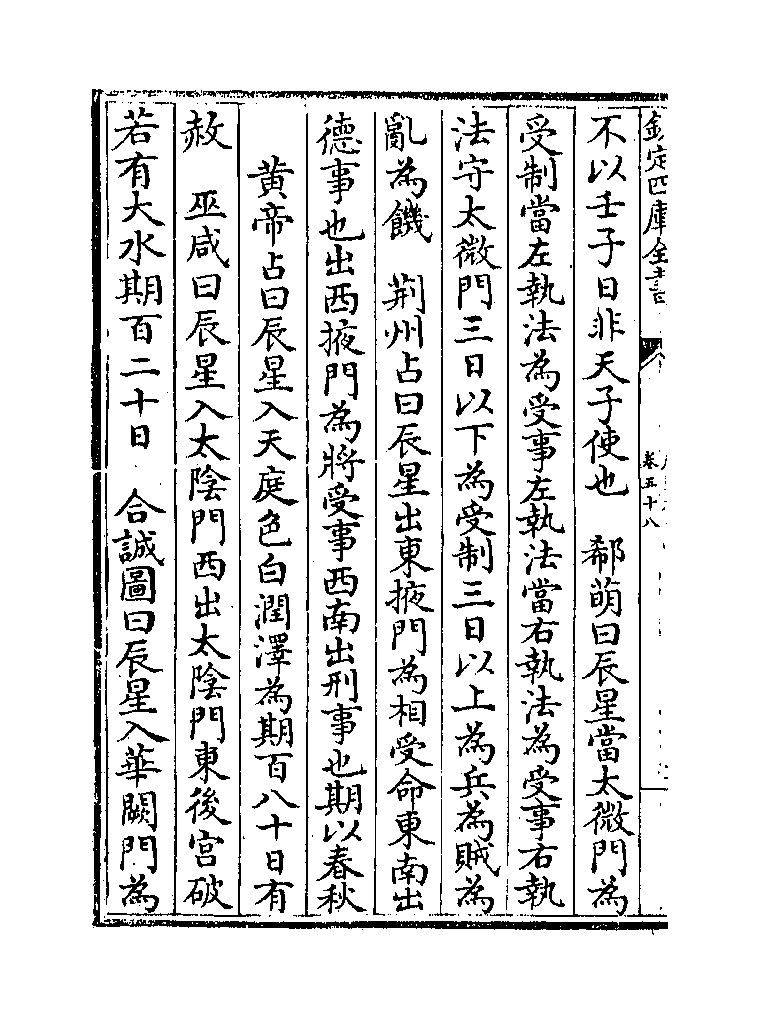 欽定四庫全書
卷五十八
不以壬子日非天子使也　郗萌曰辰星當太微門為
受制當左執法為受事左執法當右執法為受事右執
法守太微門三日以下為受制三日以上為兵為賊為
亂為饑　荆州占曰辰星出東掖門為相受命東南出
德事也出西掖門為將受事西南出刑事也期以春秋
黄帝占曰辰星入天庭色白潤澤為期百八十日有
赦　巫咸曰辰星入太陰門西出太陰門東後宫破
若有大水期百二十日　合誠圖曰辰星入華闕門為